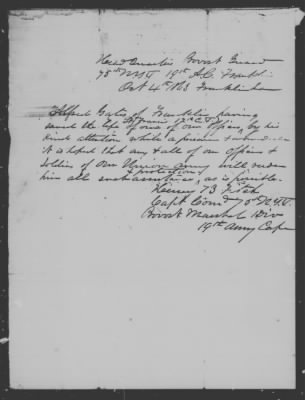 Head Quarters Provost Guard
75th NYV 19th A.C. Franklin
Oct 4th 1863
Alfred Gates of Franklin having
saved the life of one of our Officers, by his
kind attention while a prisoner &
it is hoped that any & all of our Officers &
Soldiers of our Union army will render
& protection
him all such assistance, as is possible.
Henry B Fitch
Capt Comd 75th N.Y.V.
Provost Marshal Div
19th Army Corps